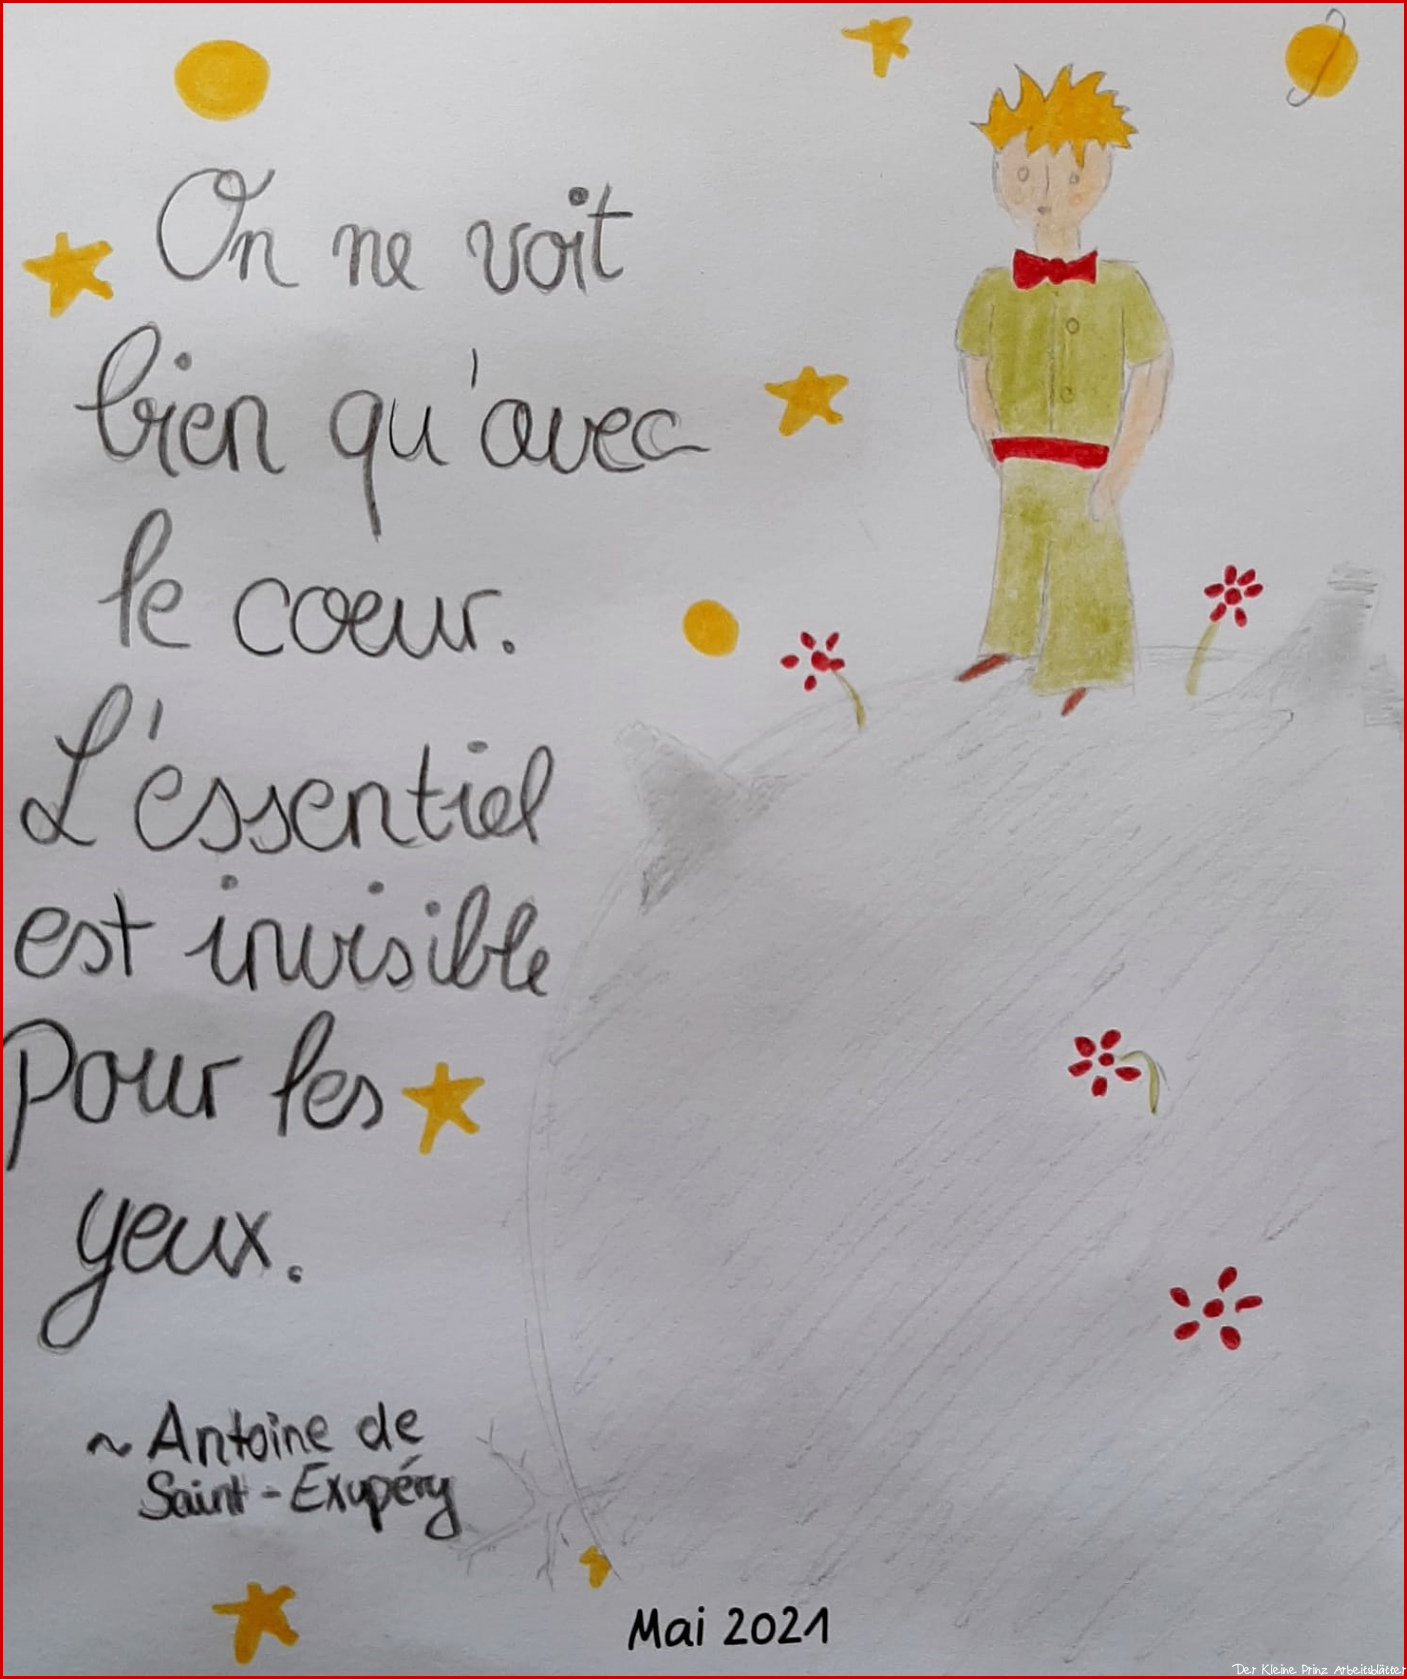 On ne voit
bien qu'avec
le coeur.
L'essentiel
est invisible
pour les
yeux.
~ Antoine de
Saint-Exupéry
Mai 2021
Der Kleine Prinz Arbeitsblätter